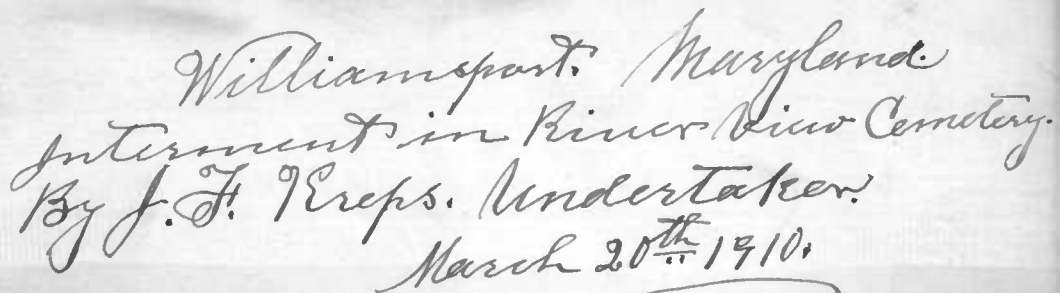 Williamsport. Maryland.
Interment in River View Cemetery.
By J. F. Kreps. Undertaker.
March 20th 1910.